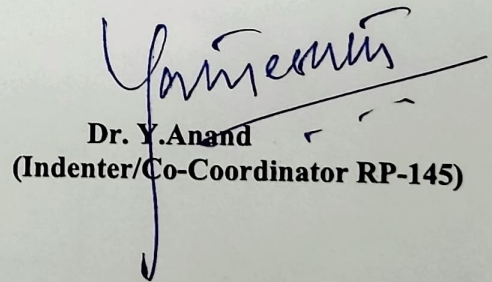 Dr. Y.Anand
(Indenter/Co-Coordinator RP-145)